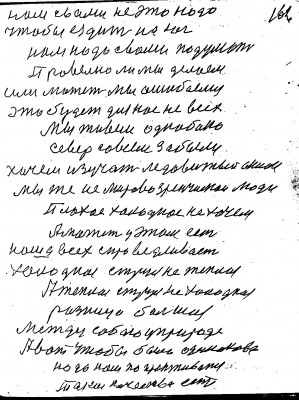 нам с вами не это надо 162
чтобы ездить на юг
нам надо с вами подумать
Правельно ли мы делаем
или может мы ошибаемся
это будет для нас не всех
Мы живем однобако
север совсем забыли
хочем изучать ледовитый океан
Мы же не мировозренческие люди
Плохое холодное не хочем
А может у этом ест
наша всех справедливаст
Холодная струя не теплая
А теплая струя не холодная
разница большая
Между собой у природе
А вот чтобы была одинакова
надо нам
Такие качества ест